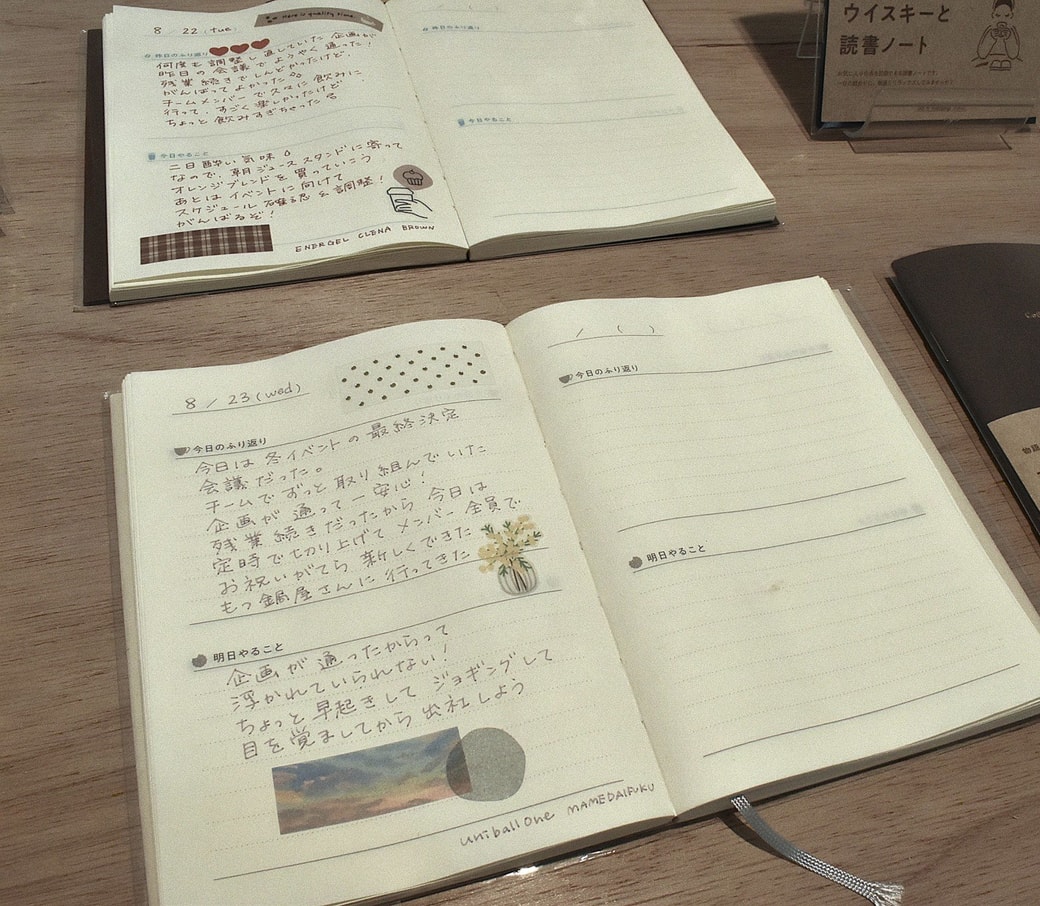 8 / 22 (tue)
Here is quality time.
昨日のふり返り
何度も調整し直していた企画が
昨日の会議でようやく通った!
残業続きでしんどかったけど、
がんばってよかった
チームメンバーで久々に飲みに
行って、すごく楽しかったけど
ちょっと飲みすぎちゃった
今日やること
二日酔い気味
なので、朝ジューススタンドに寄って
オレンジブレンドを買っていこう
あとはイベントに向けて
スケジュール確認&調整!
がんばるぞ!
ENERGEL CLENA BROWN
( )
昨日のふり返り
今日やること
ウイスキーと
読書ノート
8 / 23 (wed)
今日のふり返り
今日は冬イベントの最終決定
会議だった。
チームでずっと取り組んでいた
企画が通って一安心!
残業続きだったから今日は
定時で切り上げてメンバー全員で
お祝いがてら新しくできた
もつ鍋屋さんに行ってきた
明日やること
企画が通ったからって
浮かれていられない!
ちょっと早起きしてジョギングして
目を覚ましてから出社しよう
uniball one MAMEDAIFUKU
/ ( )
今日のふり返り
明日やること